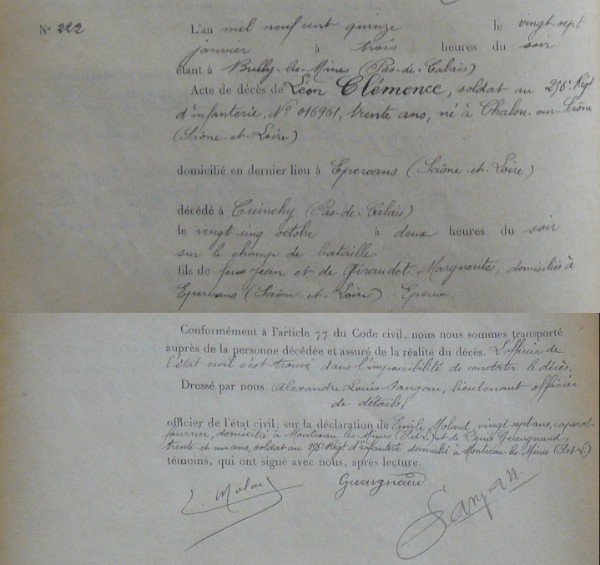 No 222
L'an mil neuf cent quinze le vingt sept
janvier à trois heures du soir
étant à Bully-les-Mines (Pas-de-Calais)
Acte de décès de Léon Clémence, soldat au 256e Régt
d'infanterie, No 016961, trente ans, né à Chalon-sur-Saône
(Saône-et-Loire)
domicilié en dernier lieu à Epervans (Saône-et-Loire)
décédé à Cuinchy (Pas-de-Calais)
le vingt cinq octobre à deux heures du soir
sur le champ de bataille
fils de feus Jean et de Giraudet Marguerite, domiciliés à
Epervans (Saône-et-Loire).
Conformément à l'article 77 du Code civil, nous nous sommes transporté
auprès de la personne décédée et assuré de la réalité du décès. L'officier de
l'état-civil s'est trouvé dans l'impossibilité de constater le décès.
Dressé par nous Alexandre Louis, lieutenant officier
de détails,
officier de l'état civil, sur la déclaration de Emile Molard, vingt sept ans, caporal
fourrier, domicilié à Montceau-les-Mines (S et L) et de Gueugnaud,
trente et un ans, soldat au 256e Régt d'infanterie domicilié à Montceau-les-Mines (S et L)
témoins, qui ont signé avec nous, après lecture.
E. Molard Gueugnaud